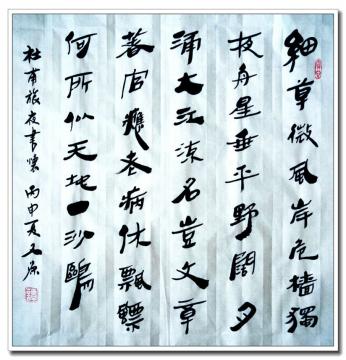 細草微風岸危檣獨
夜舟星垂平野闊月
涌大江流名豈文章
著官應老病休飄飄
何所似天地一沙鷗
杜甫旅夜書懷 丙申夏